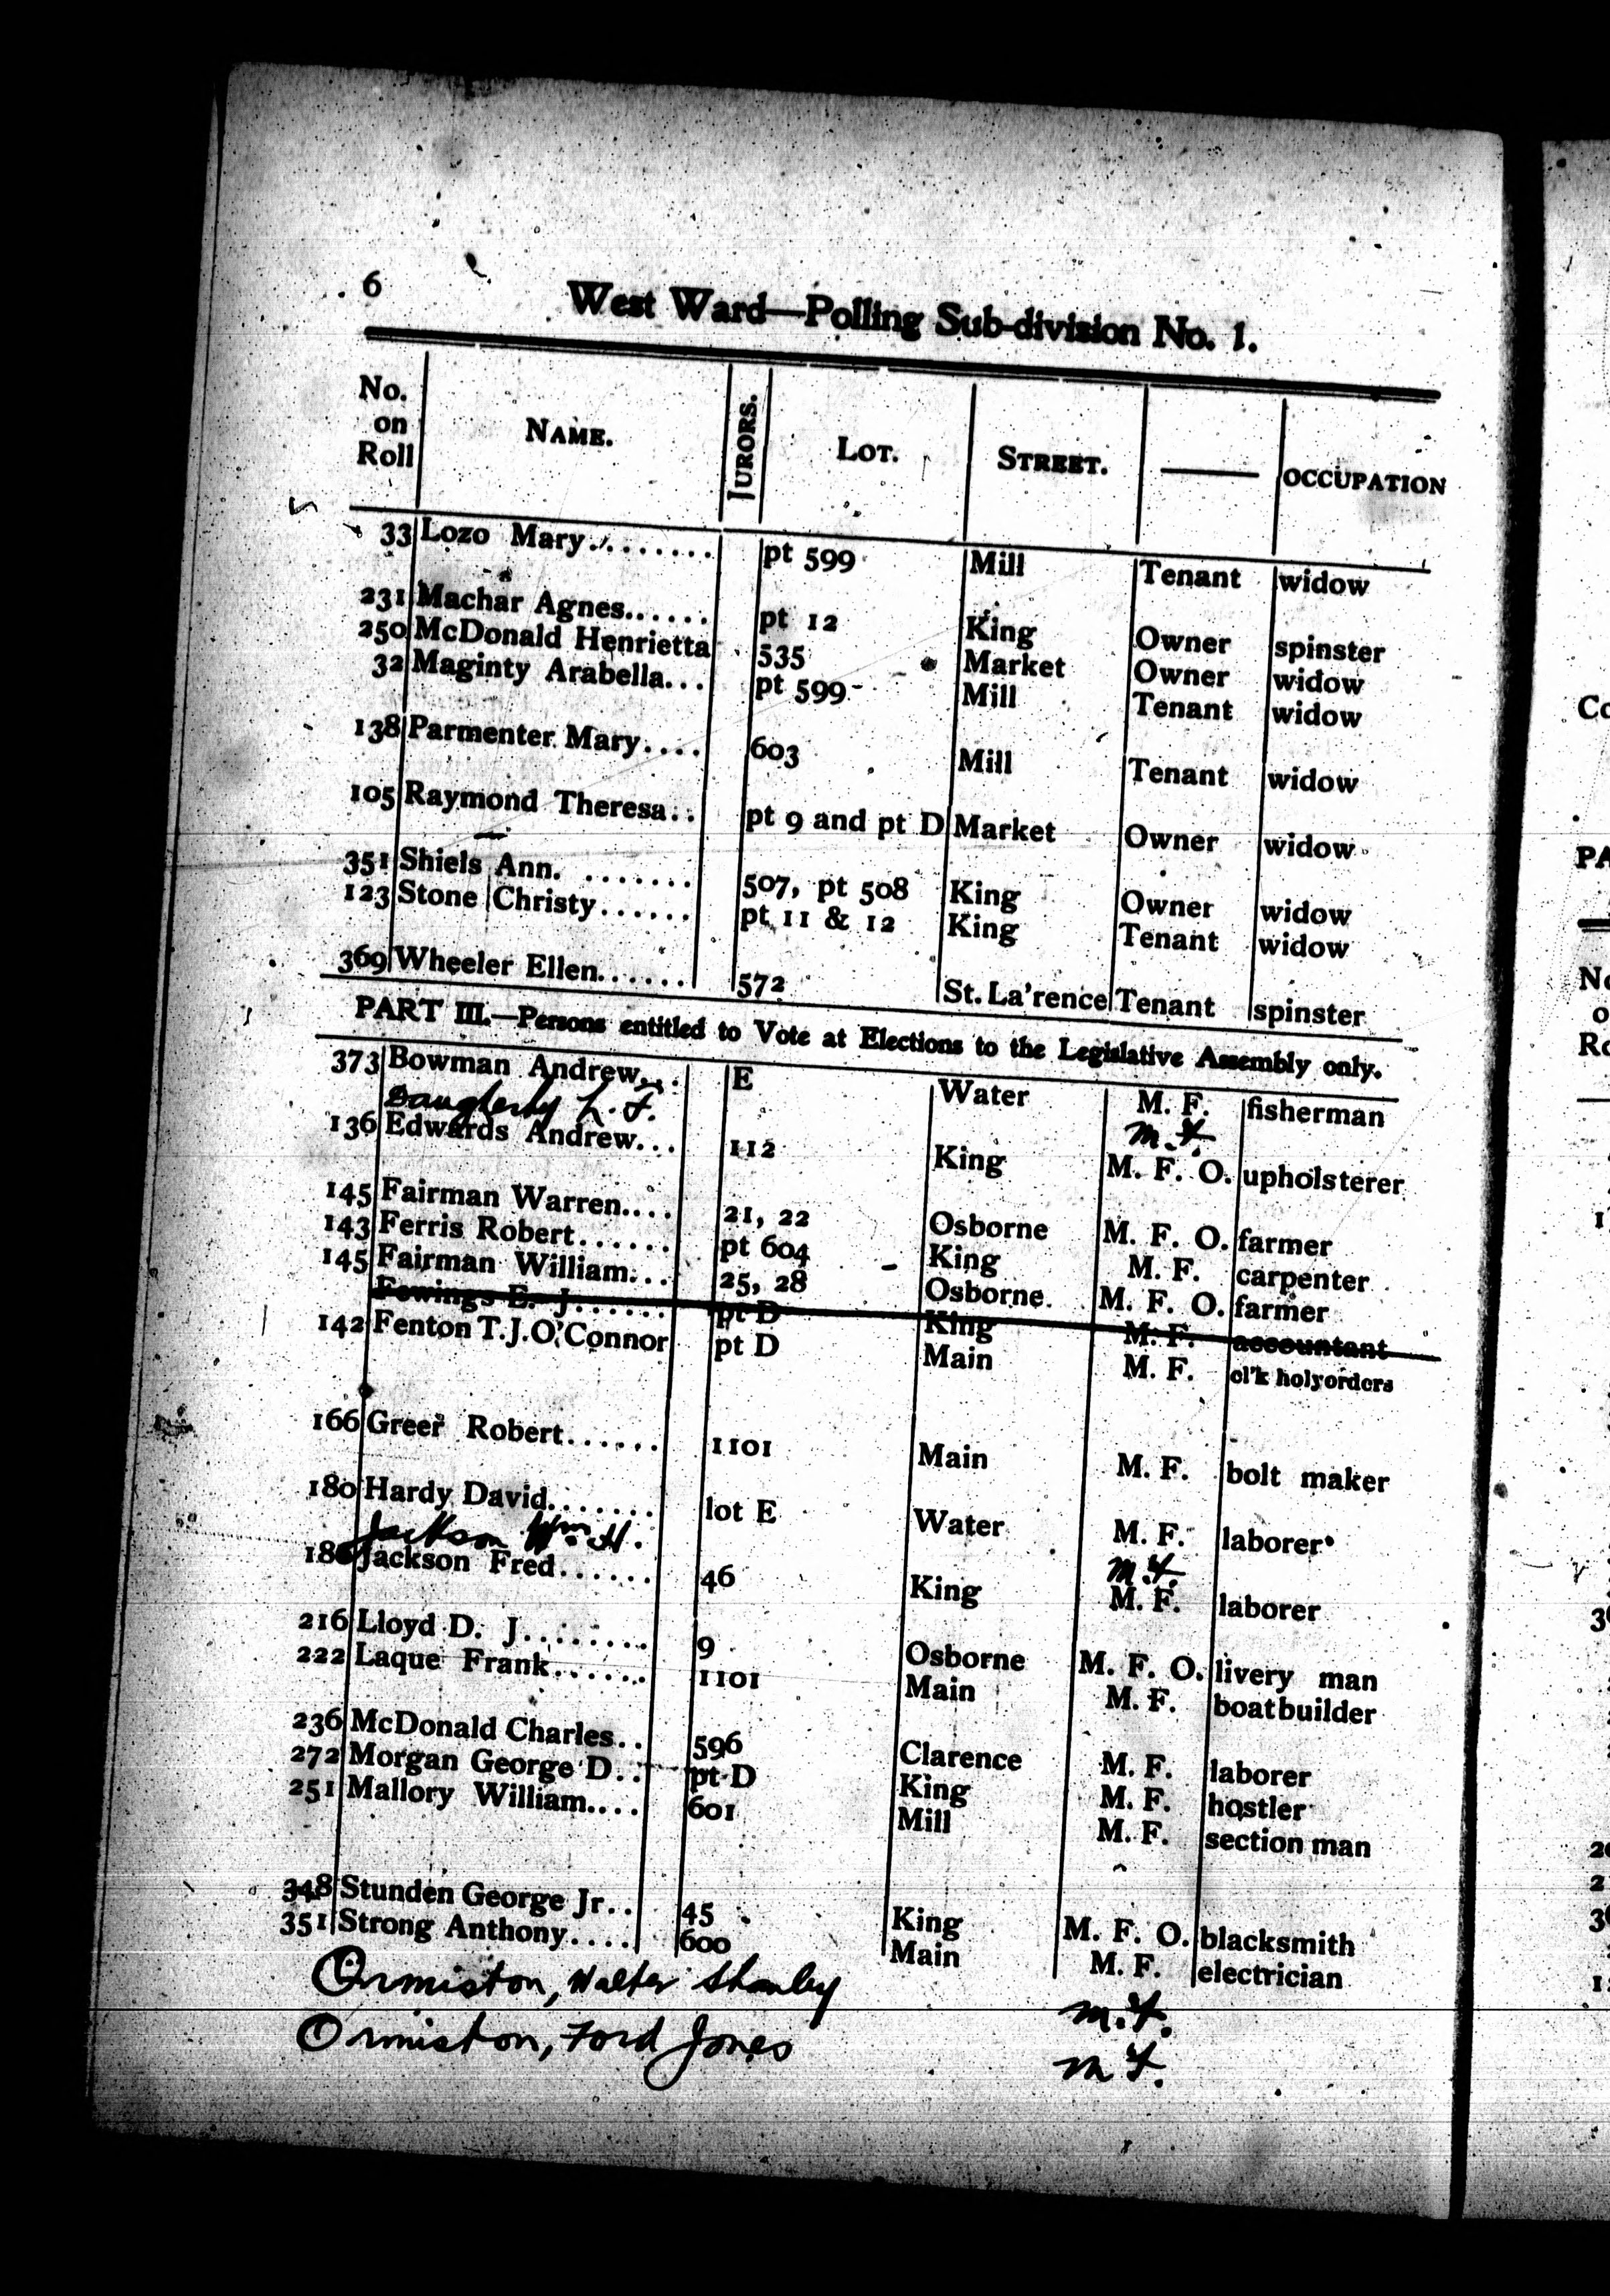 6
West Ward—Polling Sub-division No. 1.
No. on Roll NAME. JURORS. LOT. STREET. —— OCCUPATION
33 Lozo Mary........ pt 599 Mill Tenant widow
231 Machar Agnes...... pt 12 King Owner spinster
250 McDonald Henrietta 535 Market Owner widow
32 Maginty Arabella... pt 599 Mill Tenant widow
138 Parmenter Mary.... 603 Mill Tenant widow
105 Raymond Theresa.. pt 9 and pt D Market Owner widow
351 Shiels Ann. ....... 507, pt 508 King Owner widow
123 Stone Christy...... pt 11 & 12 King Tenant widow
369 Wheeler Ellen...... 572 St. La'rence Tenant spinster
PART III.—Persons entitled to Vote at Elections to the Legislative Assembly only.
373 Bowman Andrew... E Water M. F. fisherman
Daugherty L. F. M.F.
136 Edwards Andrew... 112 King M. F. O. upholsterer
145 Fairman Warren.... 21, 22 Osborne M. F. O. farmer
143 Ferris Robert...... pt 604 King M. F. carpenter
145 Fairman William... 25, 28 Osborne M. F. O. farmer
Fowings E. J...... pt D King M. F. accountant
142 Fenton T.J.O'Connor pt D Main M. F. cl'k holyorders
166 Greer Robert...... 1101 Main M. F. bolt maker
180 Hardy David....... lot E Water M. F. laborer
Jackson Wm. H. M.F.
186 Jackson Fred...... 46 King M. F. laborer
216 Lloyd D. J........ 9 Osborne M. F. O. livery man
222 Laque Frank...... 1101 Main M. F. boatbuilder
236 McDonald Charles.. 596 Clarence M. F. laborer
272 Morgan George D... pt D King M. F. hostler
251 Mallory William.... 601 Mill M. F. section man
348 Stunden George Jr.. 45 King M. F. O. blacksmith
351 Strong Anthony.... 600 Main M. F. electrician
Ormiston, Walter Stanley M.F.
Ormiston, Ford Jones M F.